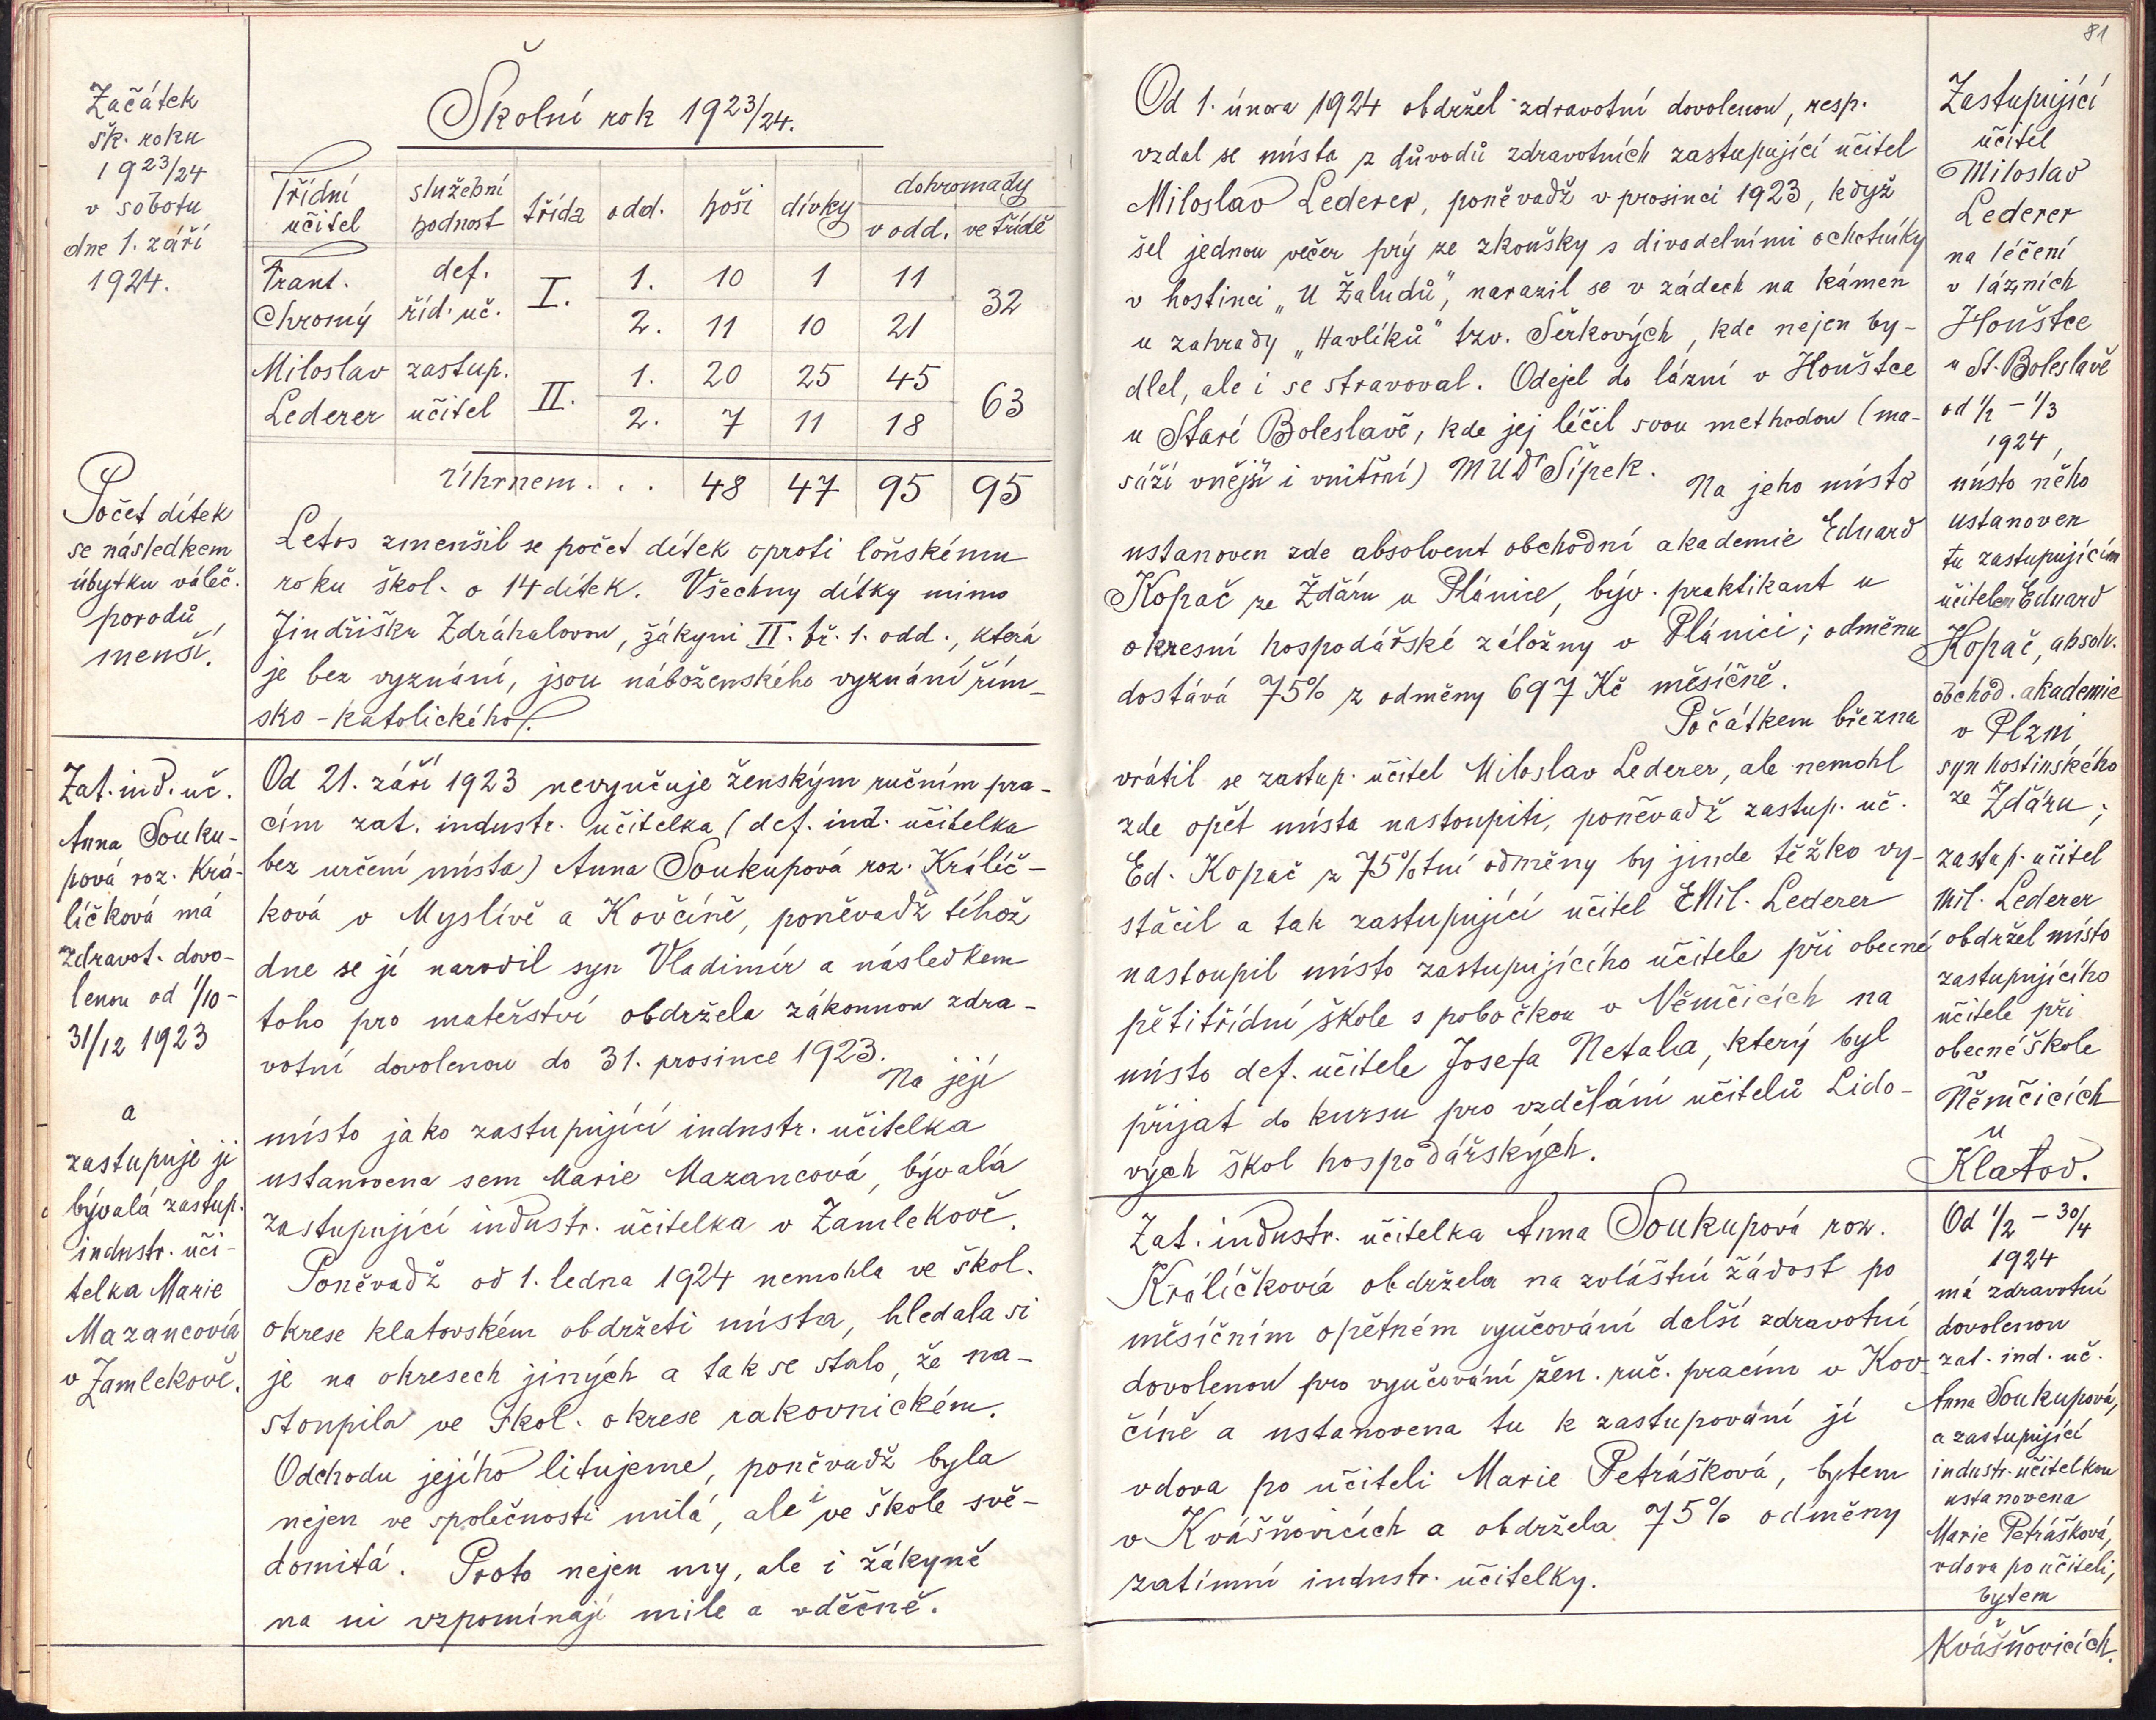 Začátek
šk. roku
1923/24
v sobotu
dne 1. září
1924.
Počet dítek
se následkem
úbytku váleč.
porodů
menší.
Školní rok 1923/24.
Třídní učitel | služební hodnost | třída | odd. | hoši | dívky | dohromady v odd. | ve třídě
Frant. Chromý | def. říd. uč. | I. | 1. | 10 | 1 | 11 | 32
2. | 11 | 10 | 21
Miloslav Lederer | zastup. učitel | II. | 1. | 20 | 25 | 45 | 63
2. | 7 | 11 | 18
Úhrnem . . . | 48 | 47 | 95 | 95
Letos zmenšil se počet dítek oproti loňskému
roku škol. o 14 dítek. Všechny dítky mimo
Jindřišku Zdráhalovou, žákyni II. tř. 1. odd., která
je bez vyznání, jsou náboženského vyznání řím-
sko-katolického.
Zat. ind. uč.
Anna Souku-
pová roz. Krá-
líčková má
zdravot. dovo-
lenou od 1/10 -
31/12 1923
a
zastupuje ji
bývalá zastup.
industr. uči-
telka Marie
Mazancová
v Zamlekově.
Od 21. září 1923 nevyučuje ženským ručním pra-
cím zat. industr. učitelka (def. ind. učitelka
bez určení místa) Anna Soukupová roz. Králíč-
ková v Myslívě a Kovčíně, poněvadž téhož
dne se jí narodil syn Vladimír a následkem
toho pro mateřství obdržela zákonnou zdra-
votní dovolenou do 31. prosince 1923.
Na její
místo jako zastupující industr. učitelka
ustanovena sem Marie Mazancová, bývalá
zastupující industr. učitelka v Zamlekově.
Poněvadž od 1. ledna 1924 nemohla ve škol.
okrese klatovském obdržeti místa, hledala si
je na okresech jiných a tak se stalo, že na-
stoupila ve škol. okrese rakovnickém.
Odchodu jejího litujeme, poněvadž byla
nejen ve společnosti milá, ale i ve škole svě-
domitá. Proto nejen my, ale i žákyně
na ni vzpomínají mile a vděčně.
81
Od 1. února 1924 obdržel zdravotní dovolenou, resp.
vzdal se místa z důvodů zdravotních zastupující učitel
Miloslav Lederer, poněvadž v prosinci 1923, když
šel jednou večer prý ze zkoušky s divadelními ochotníky
v hostinci „U Žaludů", narazil se v zádech na kámen
u zahrady „Havlíků" tzv. Šerkových, kde nejen by-
dlel, ale i se stravoval. Odejel do lázní v Houštce
u Staré Boleslavě, kde jej léčil svou methodou (ma-
sáží vnější i vnitřní) MUDr Šípek.
Na jeho místo
ustanoven zde absolvent obchodní akademie Eduard
Kopač ze Ždáru u Plánice, býv. praktikant u
okresní hospodářské záložny v Plánici; odměnu
dostává 75% z odměny 697 Kč měsíčně.
Počátkem března
vrátil se zastup. učitel Miloslav Lederer, ale nemohl
zde opět místa nastoupiti, poněvadž zastup. uč.
Ed. Kopač z 75%tní odměny by jinde těžko vy-
stačil a tak zastupující učitel Mil. Lederer
nastoupil místo zastupujícího učitele při obecné
pětitřídní škole s pobočkou v Němčicích na
místo def. učitele Josefa Netala, který byl
přijat do kursu pro vzdělání učitelů Lido-
vých škol hospodářských.
Zat. industr. učitelka Anna Soukupová roz.
Králíčková obdržela na zvláštní žádost po
měsíčním opětném vyučování další zdravotní
dovolenou pro vyučování žen. ruč. pracím v Kov-
číně a ustanovena tu k zastupování jí
vdova po učiteli Marie Petrášková, bytem
v Kvášňovicích a obdržela 75% odměny
zatímní industr. učitelky.
Zastupující
učitel
Miloslav
Lederer
na léčení
v lázních
Houštce
u St. Boleslavě
od 1/2 - 1/3
1924,
místo něho
ustanoven
tu zastupujícím
učitelem Eduard
Kopač, absolv.
obchod. akademie
v Plzni
syn hostinského
ze Ždáru;
zastup. učitel
Mil. Lederer
obdržel místo
zastupujícího
učitele při
obecné škole
Němčicích
u
Klatov.
Od 1/2 - 30/4
1924
má zdravotní
dovolenou
zat. ind. uč.
Anna Soukupová,
a zastupující
industr. učitelkou
ustanovena
Marie Petrášková,
vdova po učiteli,
bytem
v
Kvášňovicích.